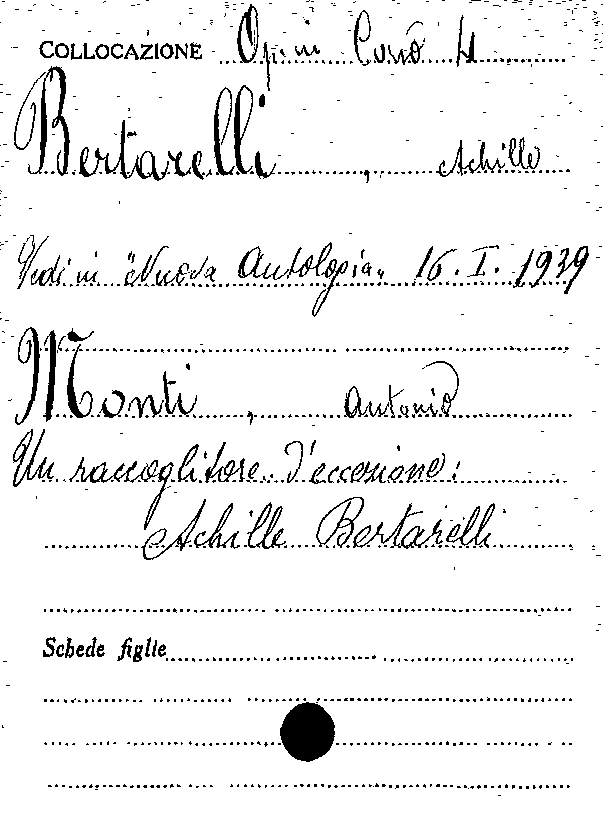 COLLOCAZIONE Op. in Corso 4
Bertarelli, Achille
Vedi in "Nuova Antologia" 16.I.1939
Monti, Antonio
Un raccoglitore d'eccezione:
Achille Bertarelli
Schede figlie